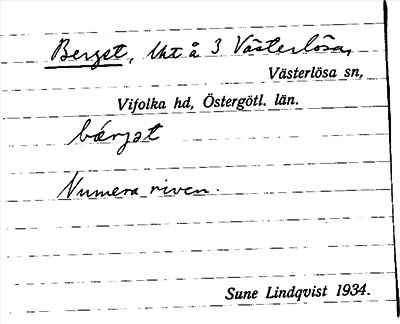 Berget, lht å 3 Västerlösa,
Västerlösa sn,
Vifolka hd, Östergötl. län.
bárjət
Numera riven.
Sune Lindqvist 1934.